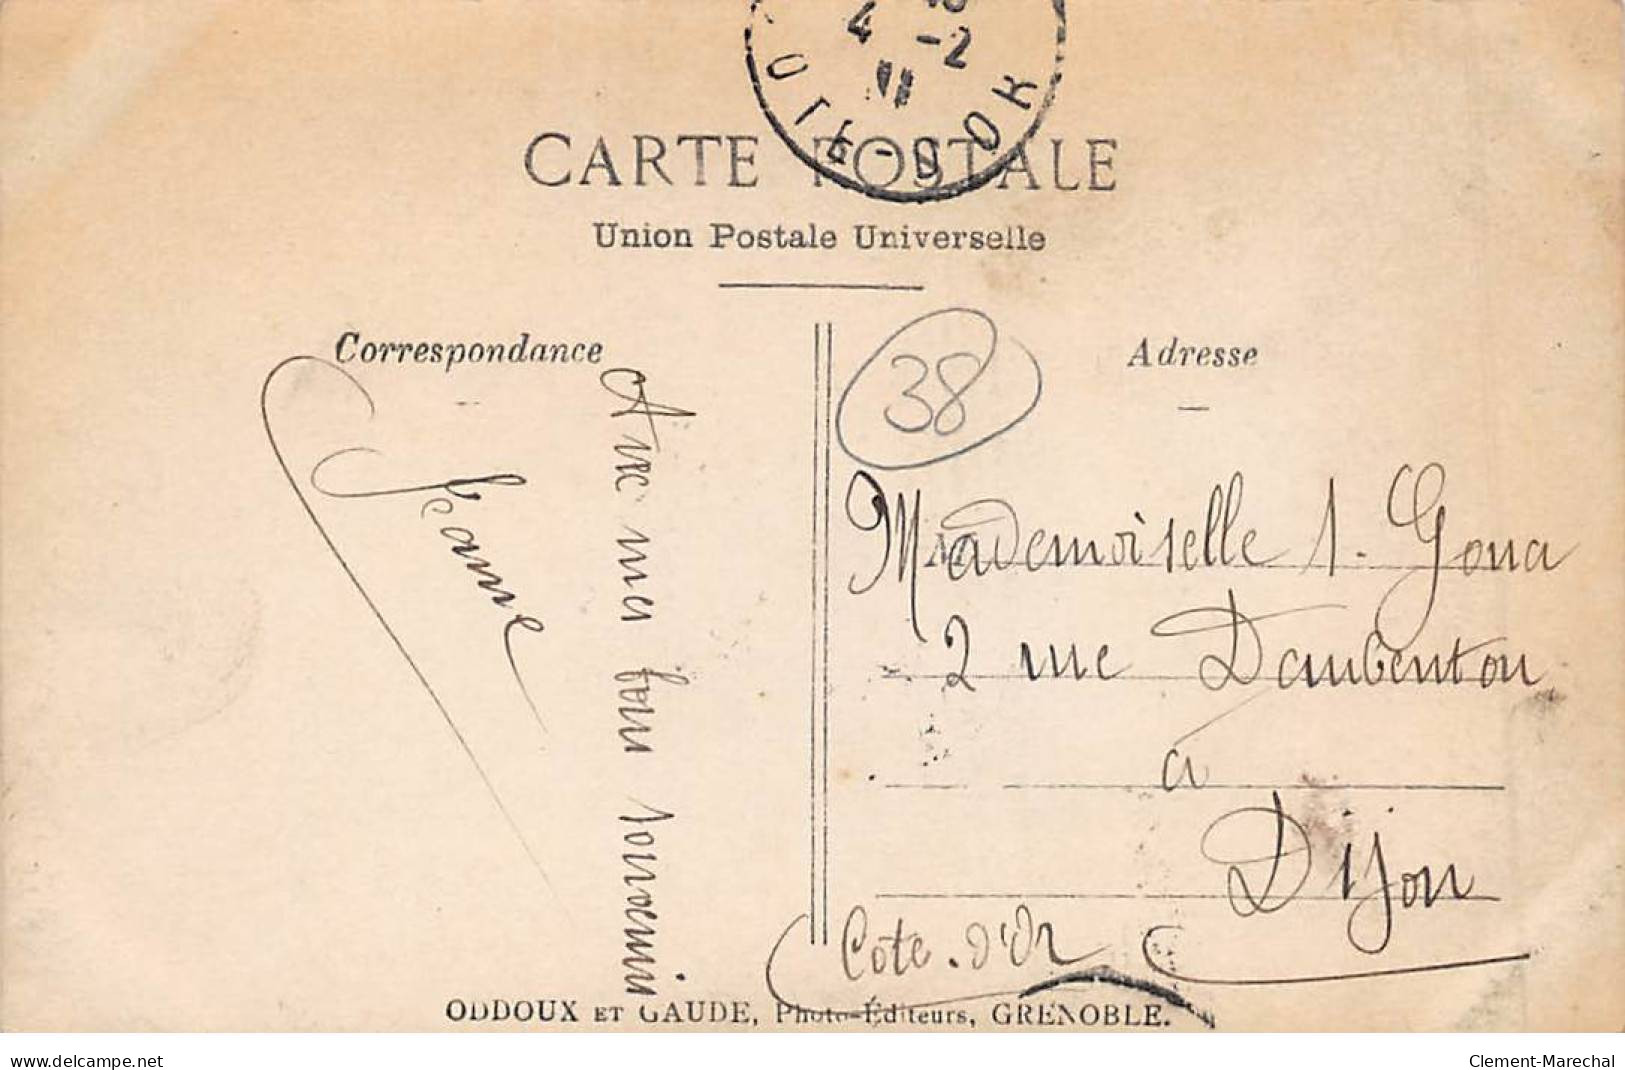 4 -2
11
COTE-D'OR
CARTE POSTALE
Union Postale Universelle
Correspondance
Avec mes bons souvenirs
Jeanne
38
Adresse
Mademoiselle
2 rue Daubenton
a
Dijon
Cote-d'Or
ODDOUX ET GAUDE, Photo-Éditeurs, GRENOBLE.
delcampe.net
Clement-Marechal